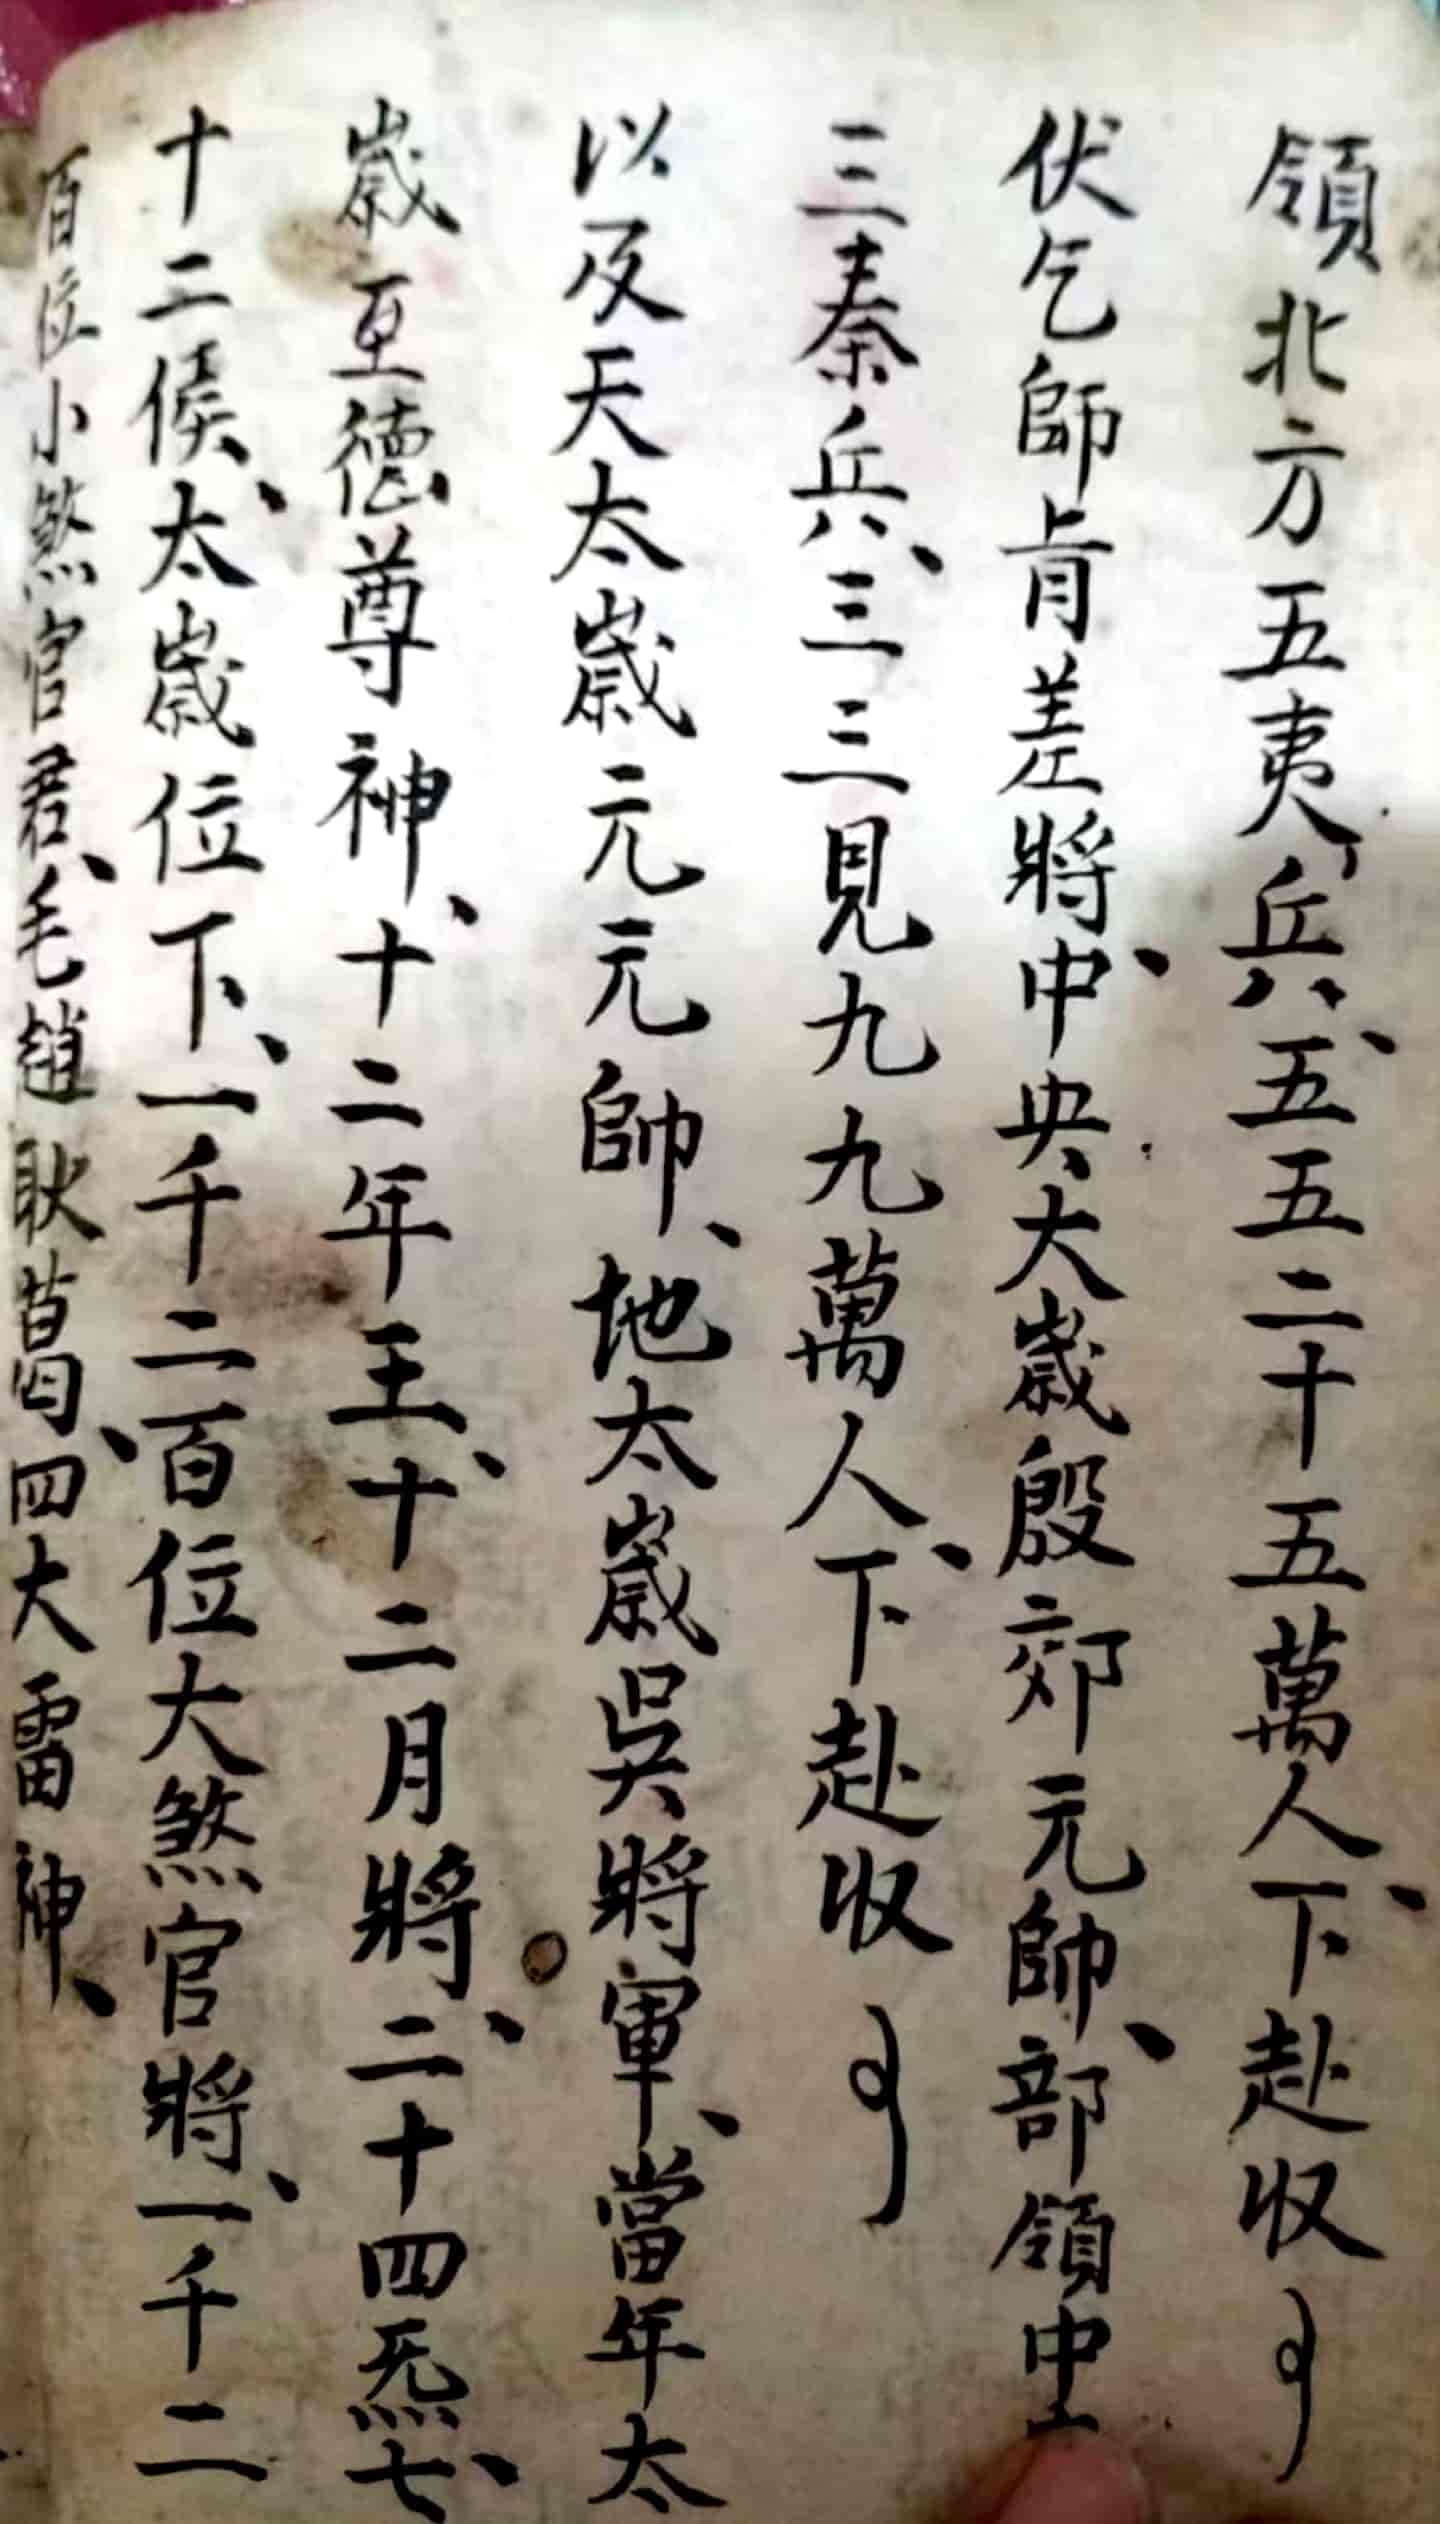 領北方五夷兵、五五二十五萬人、下赴収
伏乞師肯差將、中央大歲殷郊元帥、部領中
三秦兵、三三見九九萬人、下赴収
以及天太歲元元帥、地太歲吳將軍、當年太
歲至德尊神、十二年王、十二月將、二十四炁、七
十二候、太歲位下、一千二百位大煞官將、一千二
百位小煞官君、毛趙耿葛、四大雷神、